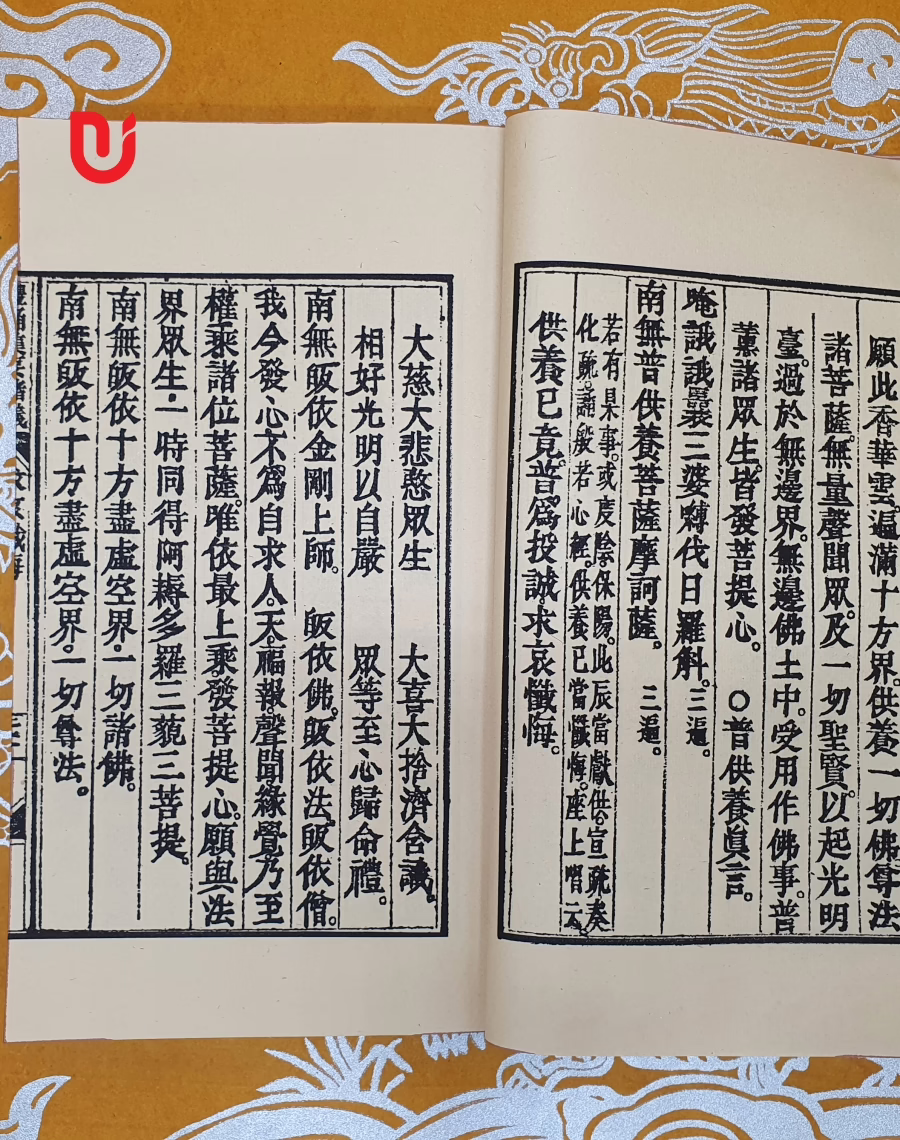 願此香華雲。遍滿十方界。供養一切佛尊法
諸菩薩。無量聲聞眾。及一切聖賢。以起光明
臺。過於無邊界。無邊佛土中。受用作佛事。普
薰諸眾生。皆發菩提心。〇普供養眞言。
唵誐誐曩三婆嚩伐日羅斛。三遍。
南無普供養菩薩摩訶薩。 三遍。
若有果事。或度陰。保陽。此辰當獻供。宣疏奏
化疏。誦般若心經。供養已當懺悔。座上唱云
供養已竟。普為投誠求哀懺悔。
大慈大悲愍眾生 大喜大捨濟含識。
相好光明以自嚴 眾等至心歸命禮。
南無皈依金剛上師。 皈依佛。皈依法。皈依僧。
我今發心不為自求人。天。福報。聲聞緣覺乃至
權乘諸位菩薩。唯依最上乘。發菩提心。願與法
界眾生。一時同得阿耨多羅三藐三菩提。
南無皈依十方盡虛空界。一切諸佛。
南無皈依十方盡虛空界。一切尊法。